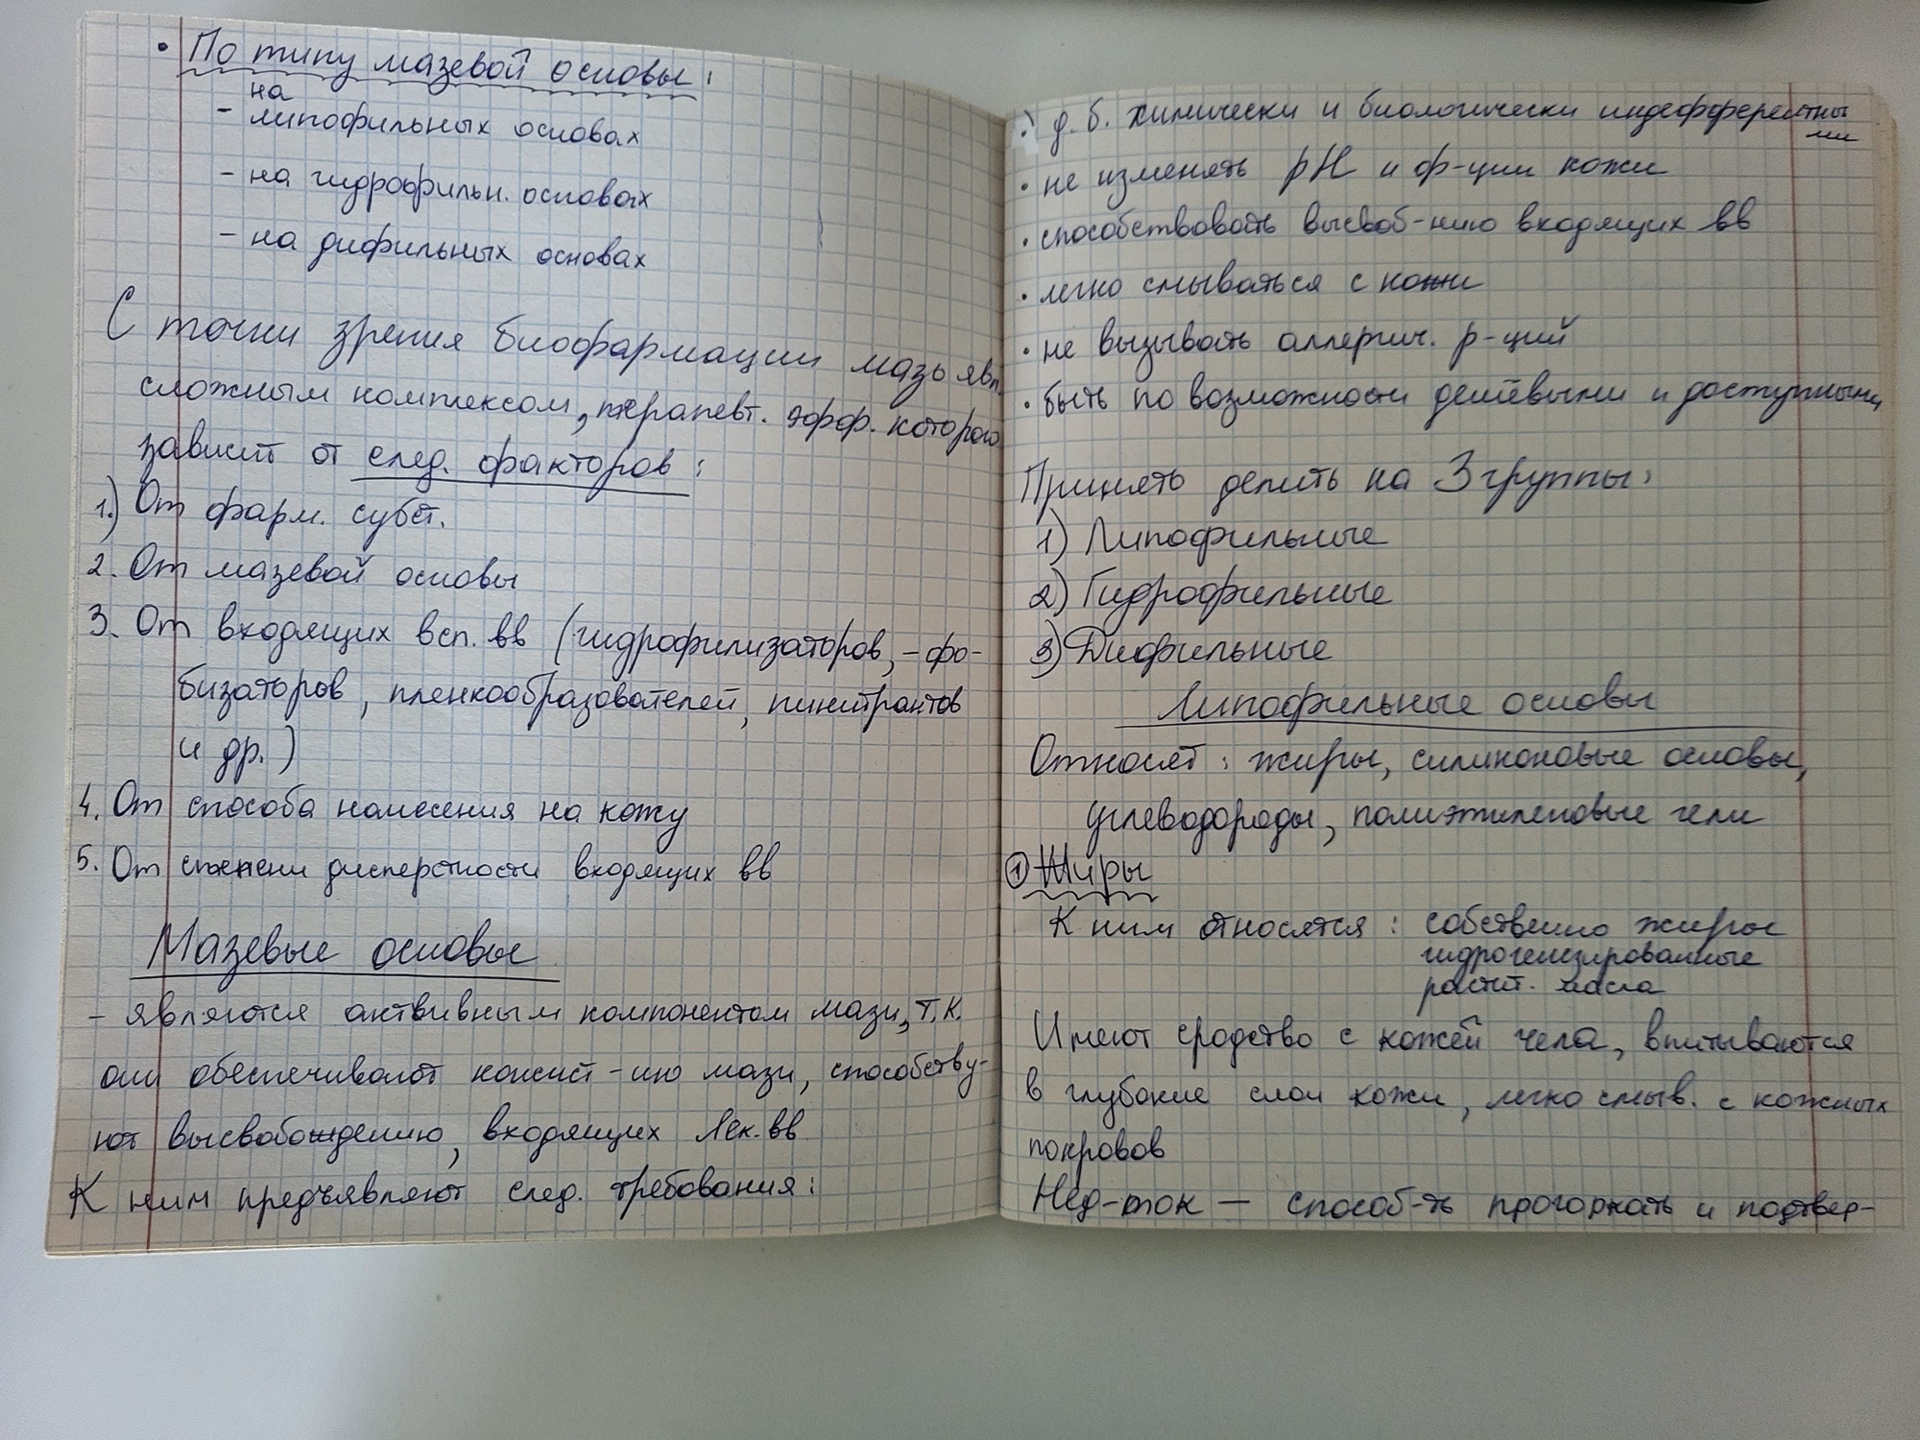 • По типу мазевой основы:
- на липофильных основах
- на гидрофильн. основах
- на дифильных основах
С точки зрения биофармации мазь явл.
сложным комплексом, терапевт. эфф. которого
зависит от след. факторов:
1.) От фарм. субст.
2. От мазевой основы
3. От входящих всп. вв (гидрофилизаторов, -фо-
бизаторов, пленкообразователей, пинитрантов
и др.)
4. От способа нанесения на кожу
5. От степени дисперстности входящих вв
Мазевые основы
- являются активным компонентом мази, т.к.
они обеспечивают консист-ию мази, способству-
ют высвобождению, входящих лек. вв
К ним предъявляют след. требования:
• д.б. химически и биологически индефферентны
ми
• не изменять pH и ф-ции кожи
• способствовать высвоб-нию входящих вв
• легко смываться с кожи
• не вызывать аллергич. р-ций
• быть по возможности дешёвыми и доступными
Принять делить на 3 группы:
1) Липофильные
2) Гидрофильные
3) Дифильные
Липофильные основы
Относят: жиры, силиконовые основы,
углеводороды, полиэтиленовые гели
① Жиры
К ним относятся: собственно жиры
гидрогенизированные
растит. масла
Имеют сродство с кожей чела, впитываются
в глубокие слои кожи, легко смыв. с кожных
покровов
Нед-ток — способ-ть прогоркать и подтвер-